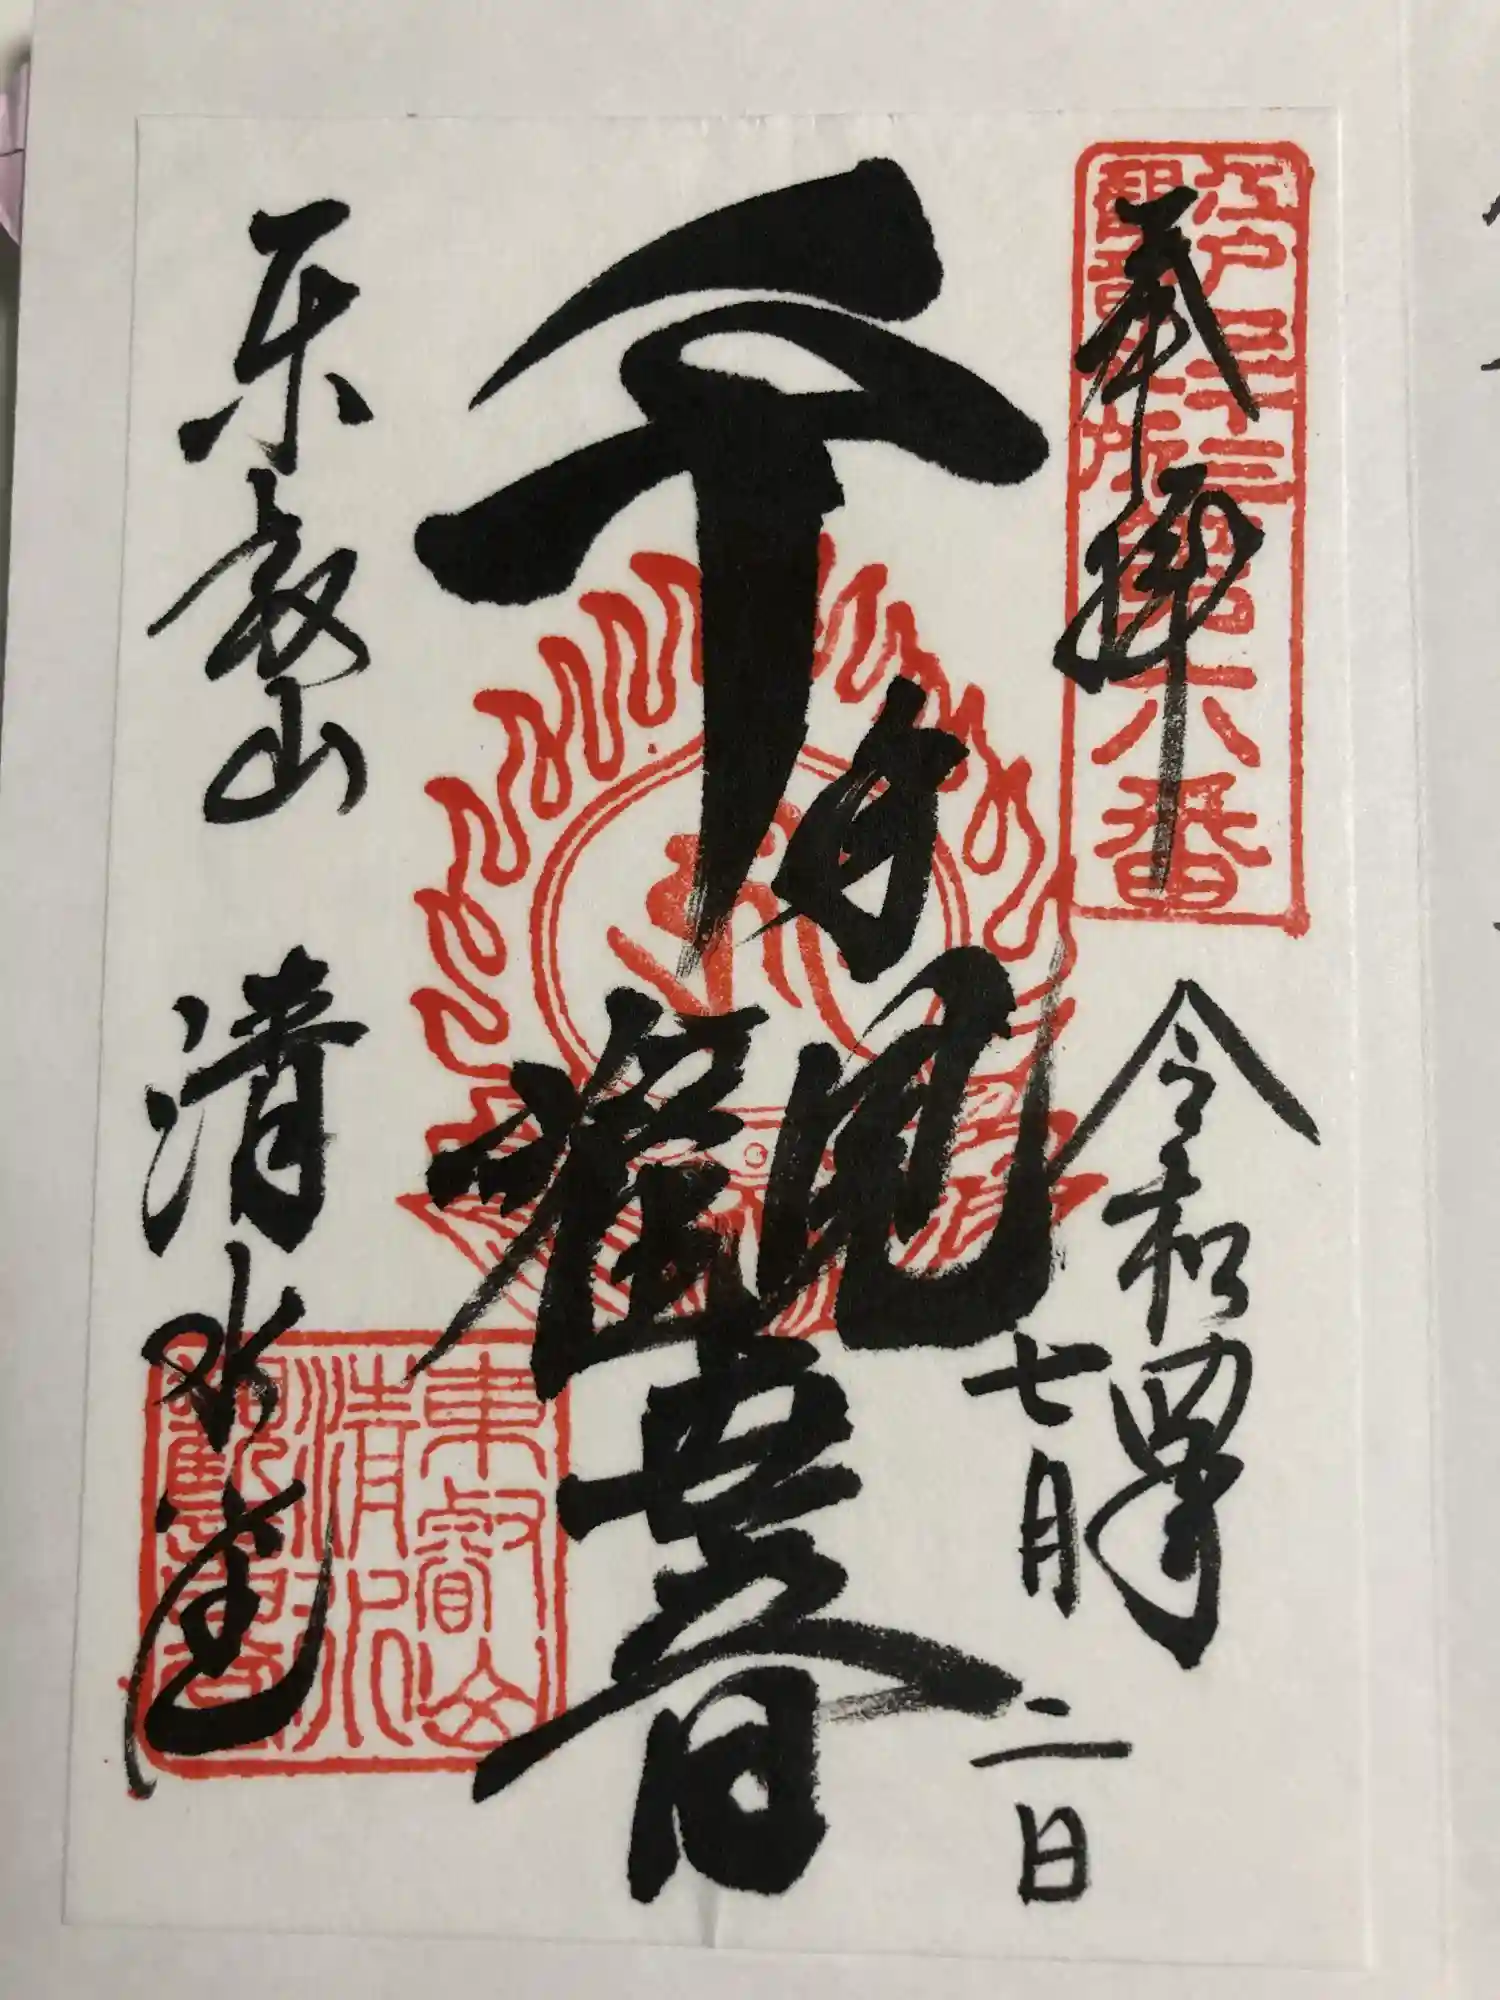 奉拝
江戸三十三
観音札所第六番
令和四年
七月二日
千手観音
東叡山 清水堂
東叡山
清水
観音堂